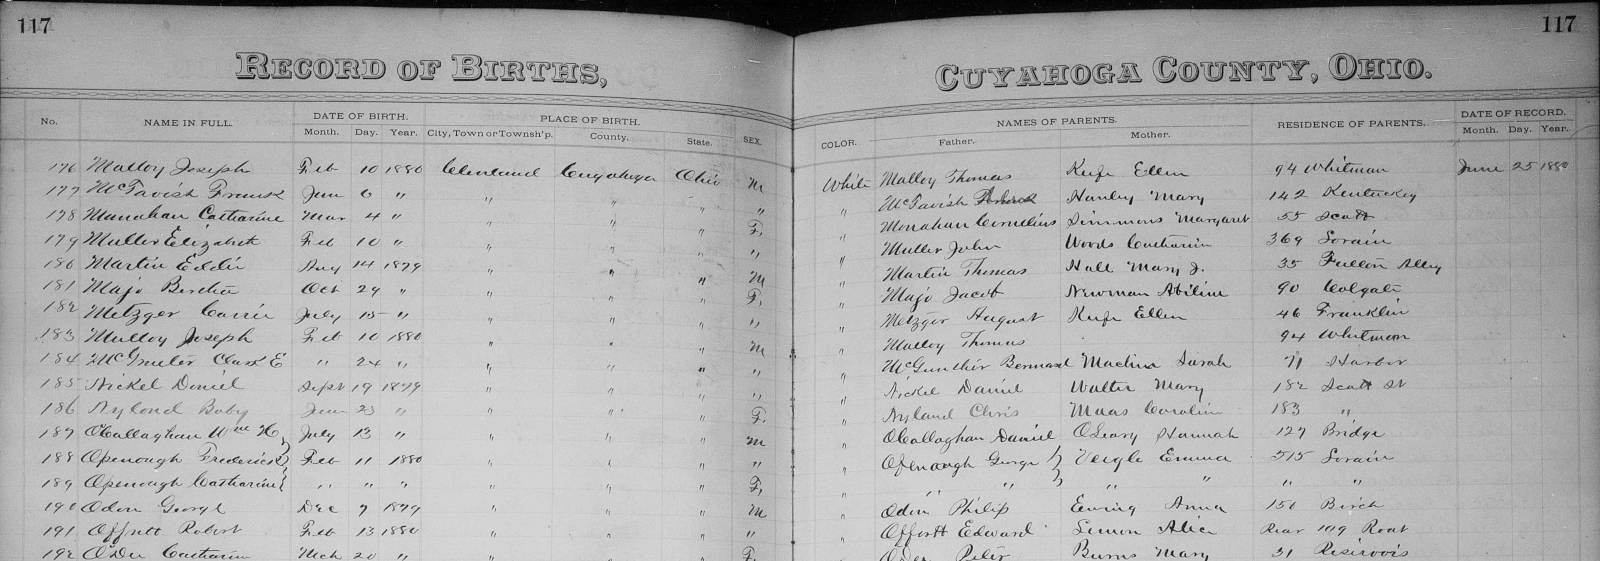 117 117
RECORD OF BIRTHS, CUYAHOGA COUNTY, OHIO.
No. NAME IN FULL. DATE OF BIRTH. Month. Day. Year. PLACE OF BIRTH. City, Town or Townsh'p. County. State. SEX. COLOR. NAMES OF PARENTS. Father. Mother. RESIDENCE OF PARENTS. DATE OF RECORD. Month. Day. Year.
176 Malloy Joseph Feb 10 1880 Cleveland Cuyahoga Ohio M White Malloy Thomas Ellen 94 Whitman June 25 1880
177 McTavish Frank Jan 6 " " " " " " McTavish Hanley Mary 142 Kentuckey
178 Manahan Catharine Mar 4 " " " " F, " Monahan Cornelius Simmons Margaret 55 Scott
179 Muller Elizabeth Feb 10 " " " " " " Muller John Woods Catharin 369 Lorain
180 Martin Eddie Aug 14 1879 " " " M " Martin Thomas Hall Mary J. 35 Fulton Alley
181 Majo Bertha Oct 29 " " " " F, " Majo Jacob Newman Abiline 90 Colgate
182 Metzger Carrie July 15 " " " " " " Metzger August Ellen 46 Franklin
183 Mulloy Joseph Feb 10 1880 " " " M " Malloy Thomas 94 Whitman
184 Clark E " 24 " " " " " " McGunther Bernard Sarah 71 Harbor
185 Nickel Daniel Sept 19 1879 " " " " " Nickel Daniel Walter Mary 182 Scott St
186 Nyland Baby Jun 23 " " " " F. " Nyland Chris Maas Carolin 183 "
187 OCallaghan Wm H July 13 " " " " M " OCallaghan Daniel OLeary Hannah 127 Bridge
188 Openough Frederick Feb 11 1880 " " " " " Openough George Veigle Emma 515 Lorain
189 Openough Catharine " " " " " " F, " " " " " "
190 Odon George Dec 9 1879 " " " M " Odin Philip Ewing Anna 150 Birch
191 Offrett Robert Feb 13 1880 " " " " " Offrott Edward Lemon Alice Rear 109 Root
192 ODee Catharin Mch 20 " " " " F, Peter Burns Mary 31